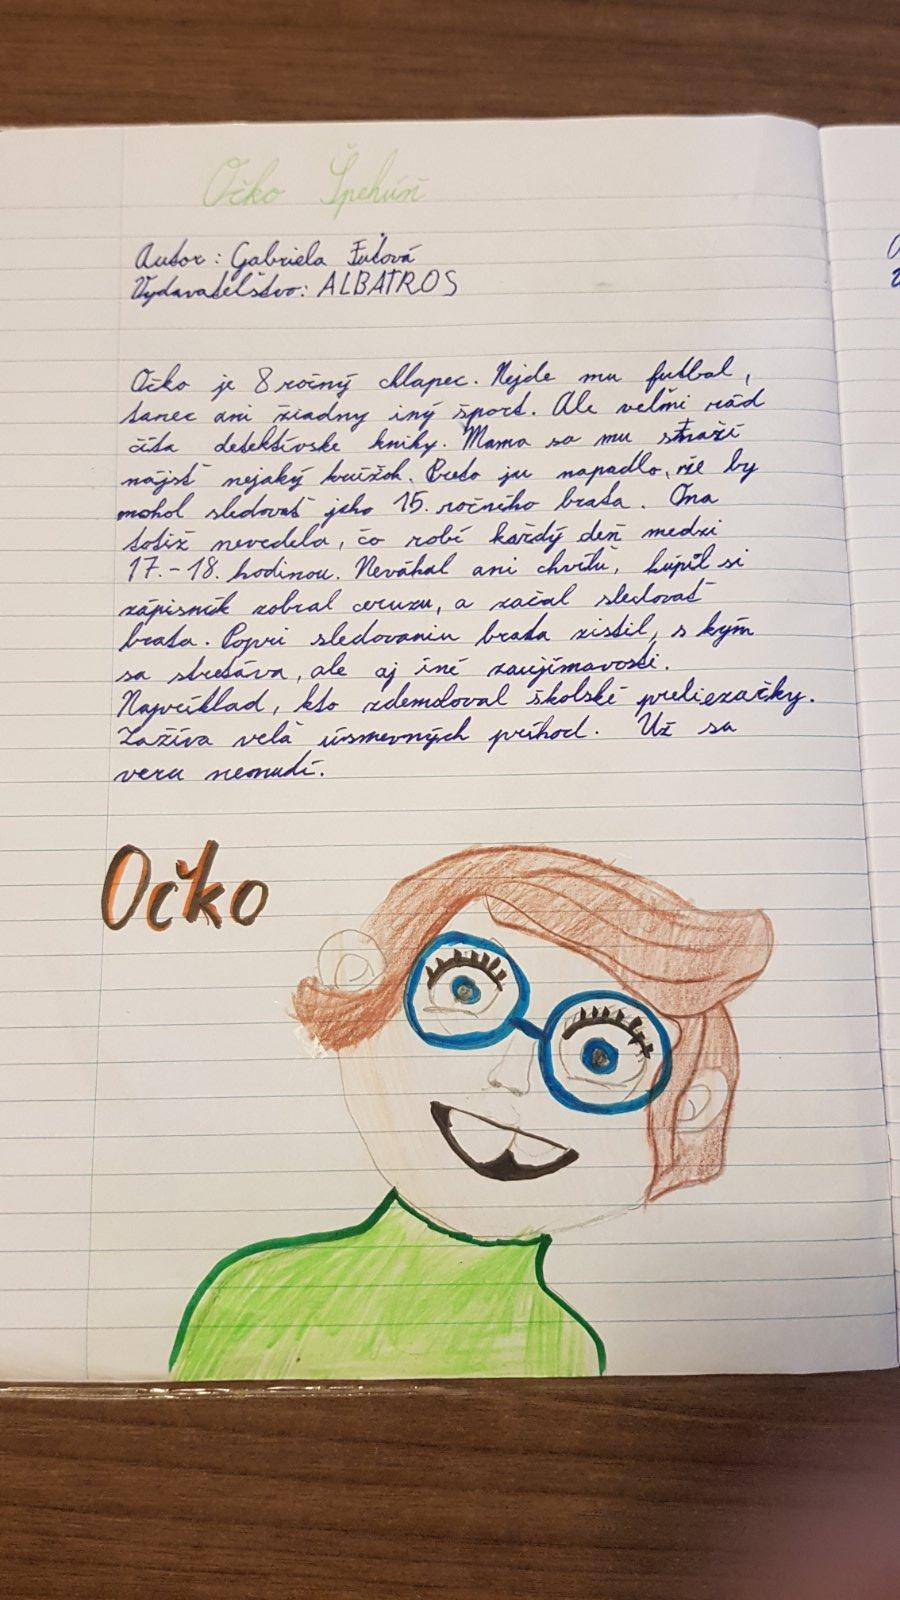 Očko Špehúň
Autor: Gabriela Futová
Vydavateľstvo: ALBATROS
Očko je 8 ročný chlapec. Nejde mu futbal,
tanec ani žiadny iný šport. Ale veľmi rád
číta detektívske knihy. Mama sa mu snaží
nájsť nejaký krúžok. Preto ju napadlo, že by
mohol sledovať jeho 15. ročného brata. Ona
totiž nevedela, čo robí každý deň medzi
17.-18. hodinou. Neváhal ani chvíľu, kúpil si
zápisník zobral ceruzu, a začal sledovať
brata. Popri sledovaniu brata zistil, s kým
sa stretáva, ale aj iné zaujímavosti.
Napríklad, kto zdemoloval školské preliezačky.
Zažíva veľa úsmevných príhod. Už sa
veru nenudí.
Očko